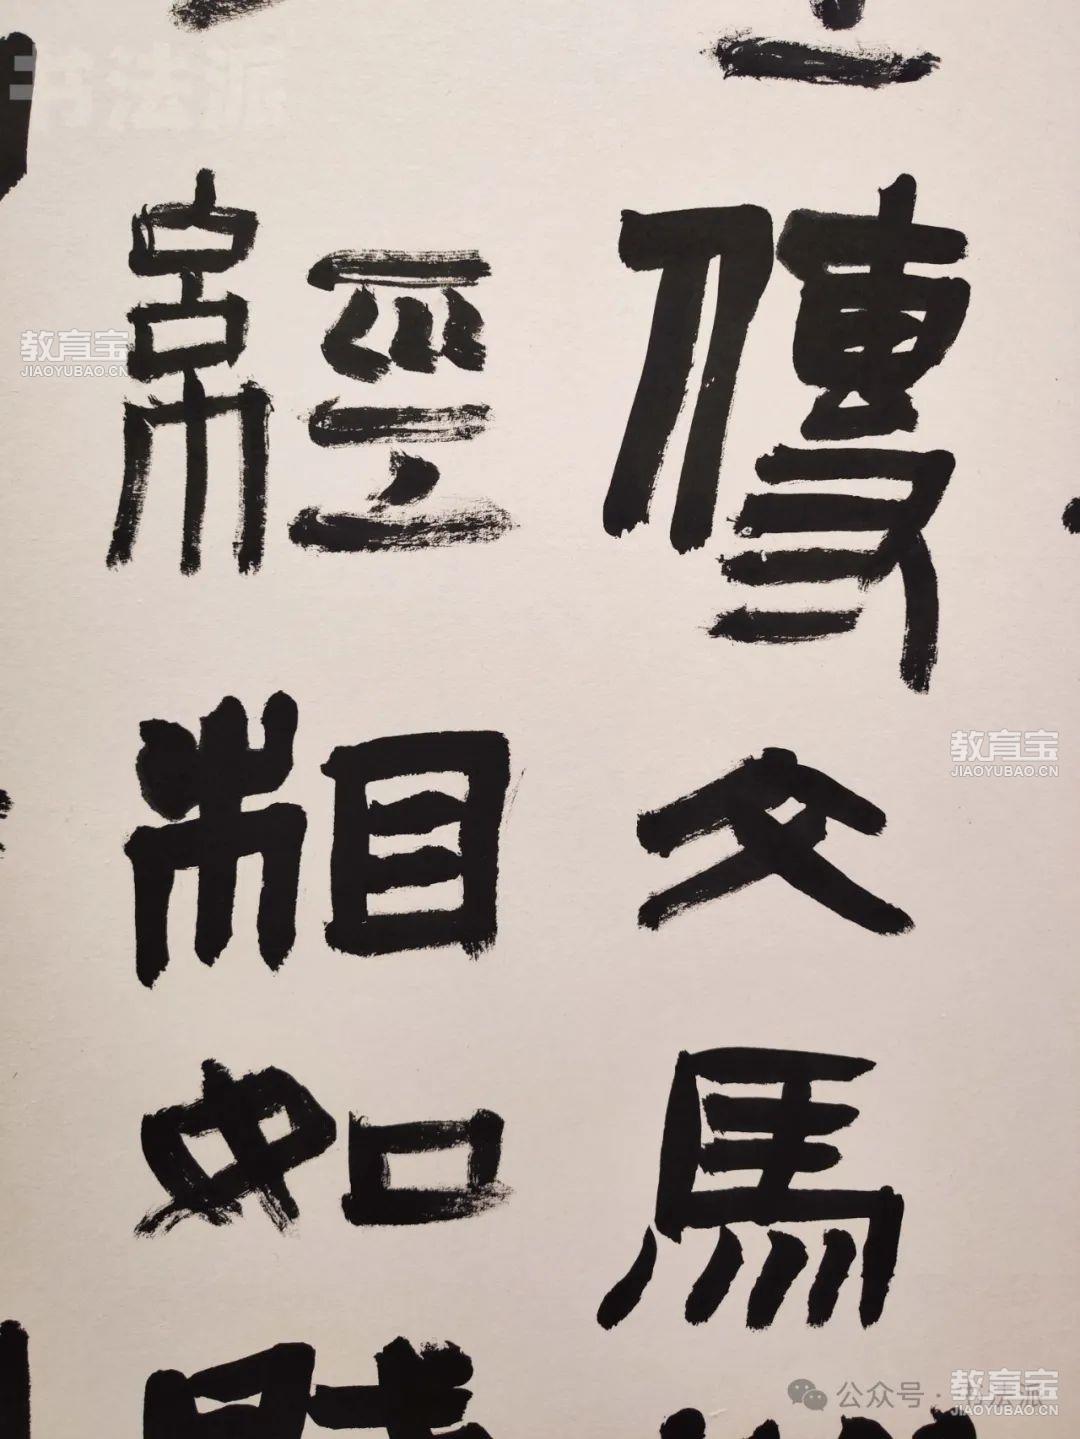 傳文馬
經相如
书法派
教育宝
JIAOYUBAO.CN
教育宝
JIAOYUBAO.CN
公众号·书法派
教育宝
JIAOYUBAO.CN